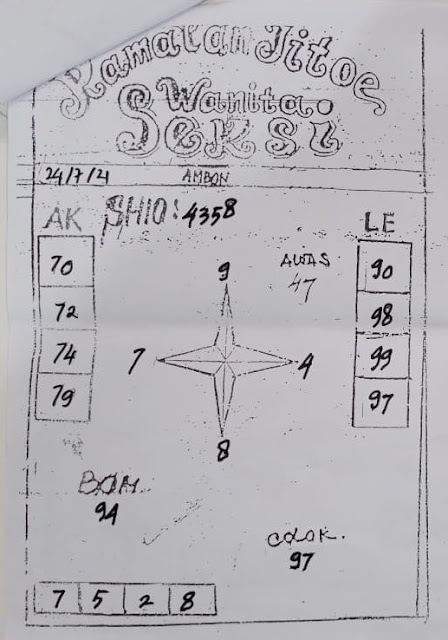 Ramalan Jitoe
Wanita.
Seksi
24/7/21 AMBON
SHIO: 4358
AK
LE
70
72
74
79
9
7
4
8
AWAS
47
90
98
99
97
BOM.
94
COLOK.
97
7 5 2 8